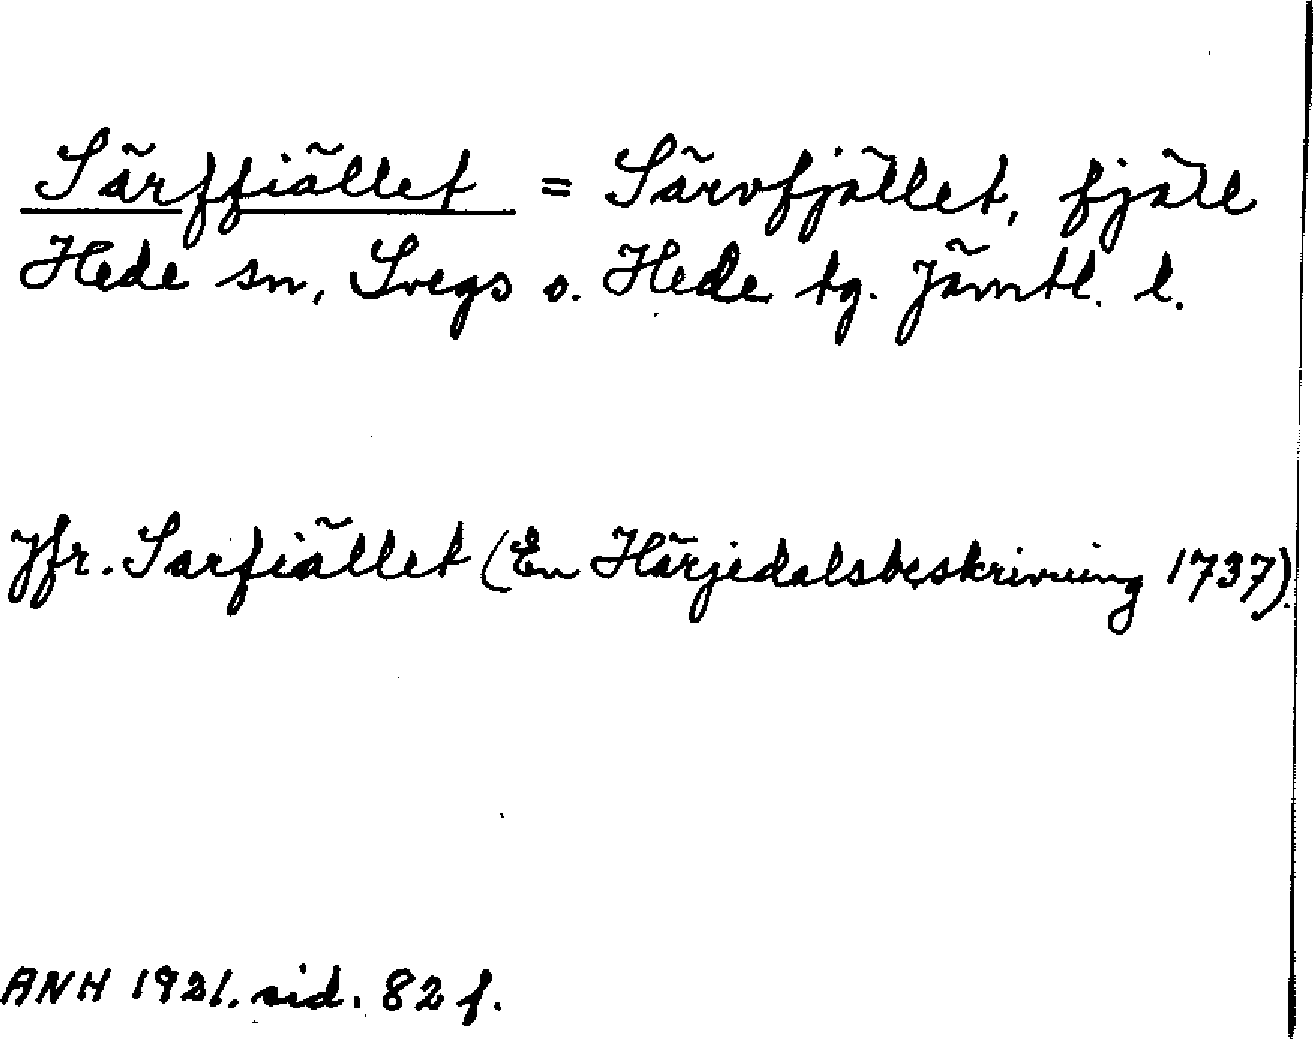 Särffiället = Särvfjället, fjäll
Hede sn, Svegs o. Hede tg. Jämtl. l.
Jfr. Sarfiället (En Härjedalsbeskrivning 1737).
ANH 1921. sid. 82 f.